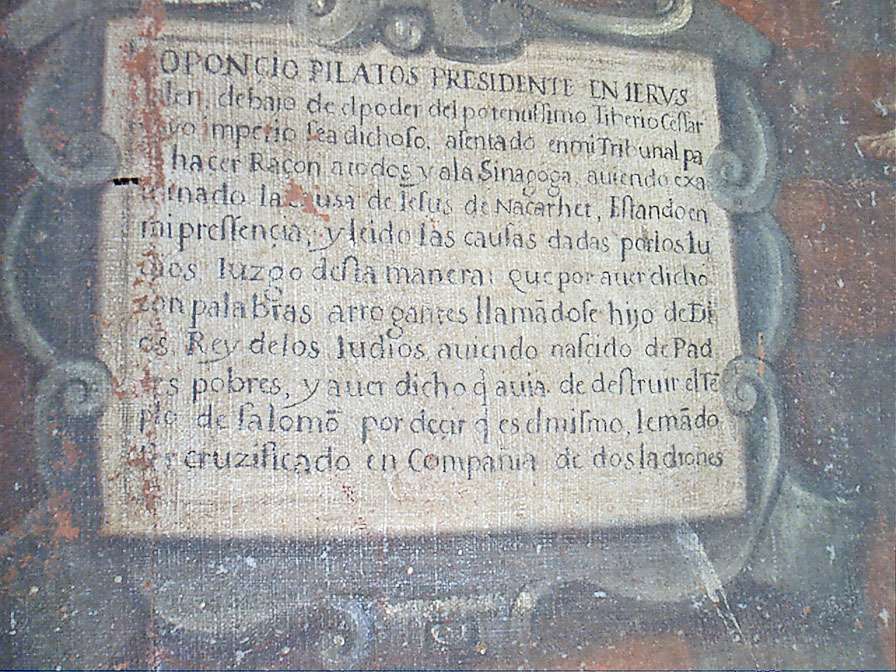 OPONCIO PILATOS PRESIDENTE EN IERVS
len, debajo de el poder del potentissimo Tiberio Cessar
cuyo imperio sea dichoso, asentado en mi Tribunal pa
hacer Raçon a todos y a la Sinagoga, auiendo exa
minado la causa de Iesus de Naçarhet, Estando en
mi pressençia, y leido las causas dadas por los Iu
dios Iuzgo desta manera: que por auer dicho
con palabras arrogantes llamãdose hijo de Di
os, Rey de los Iudios, auiendo nascido de Pad
res pobres, y auer dicho q̃ auia de destruir el Tẽ
plo de salomõ por deçir q̃ es el mismo, le mãdo
ser cruzificado en Compañia de dos ladrones